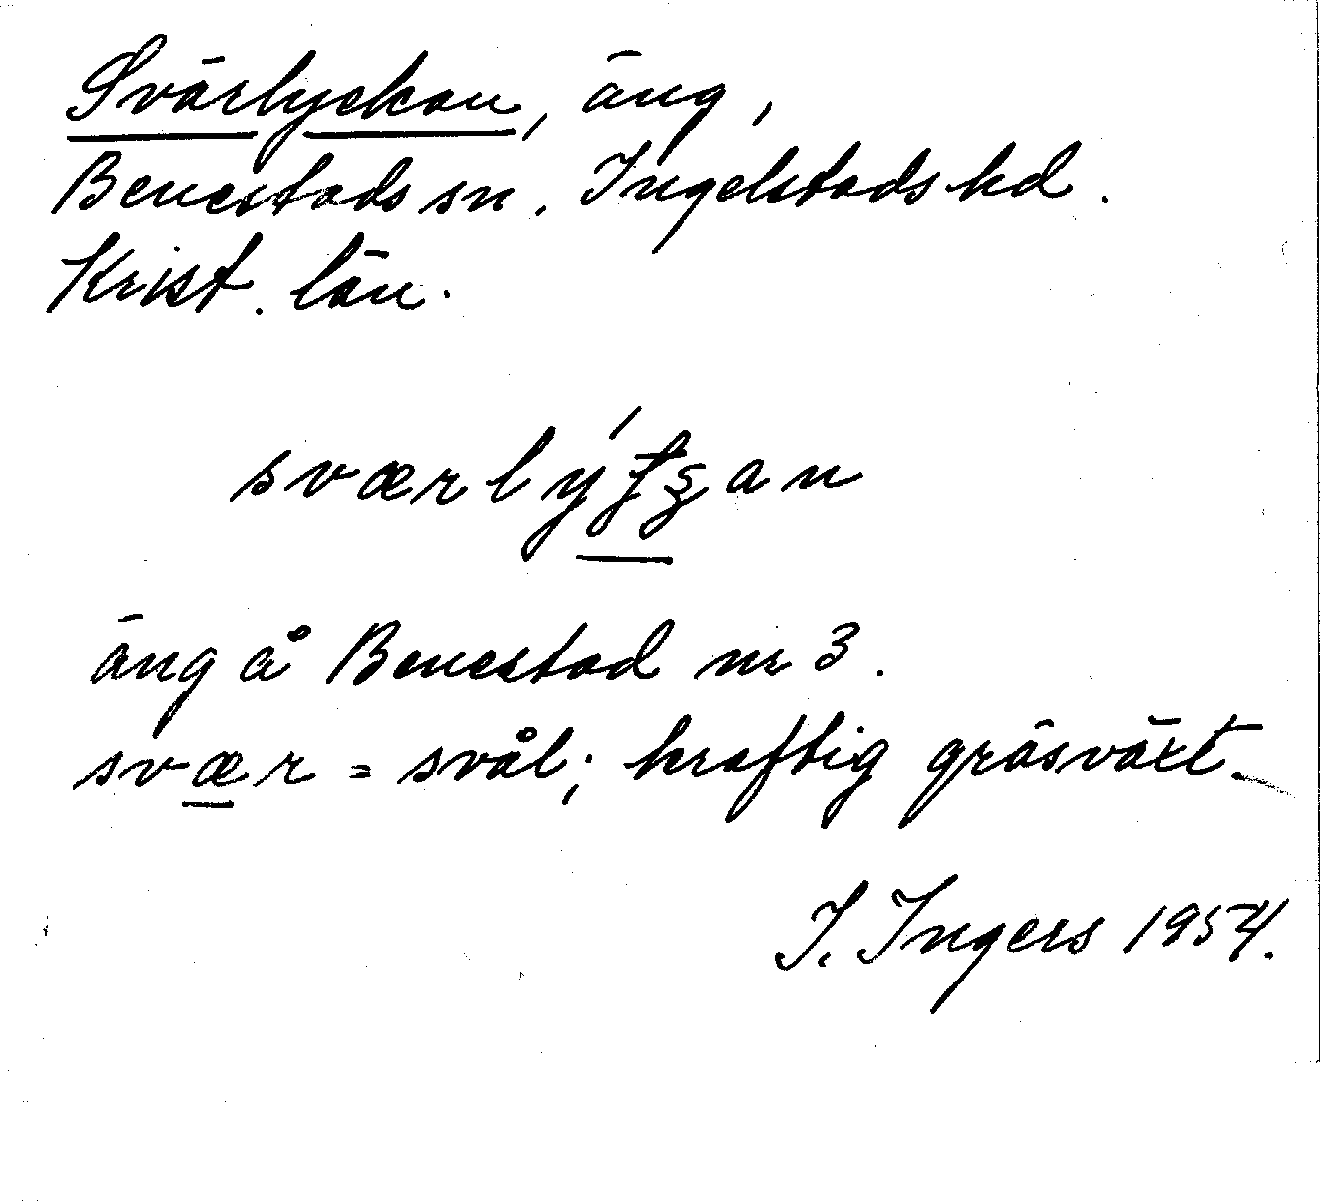 Svärlyckan, äng,
Benestads sn. Ingelstads hd.
Krist. län.
äng å Benestad nr 3.
svær = svål; kraftig gräsväxt.
I. Ingers 1954.